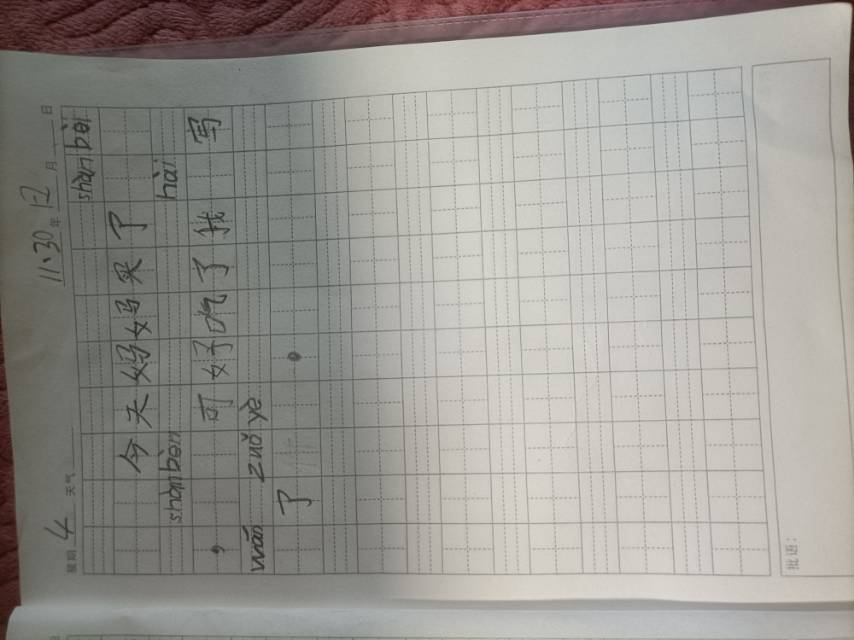 星期 4 天气 11.30年 12月 日
shàn bèi
今天妈妈买了
shàn bèn hài
，可好吃了我写
wán zuǒ yè
了。
批语：